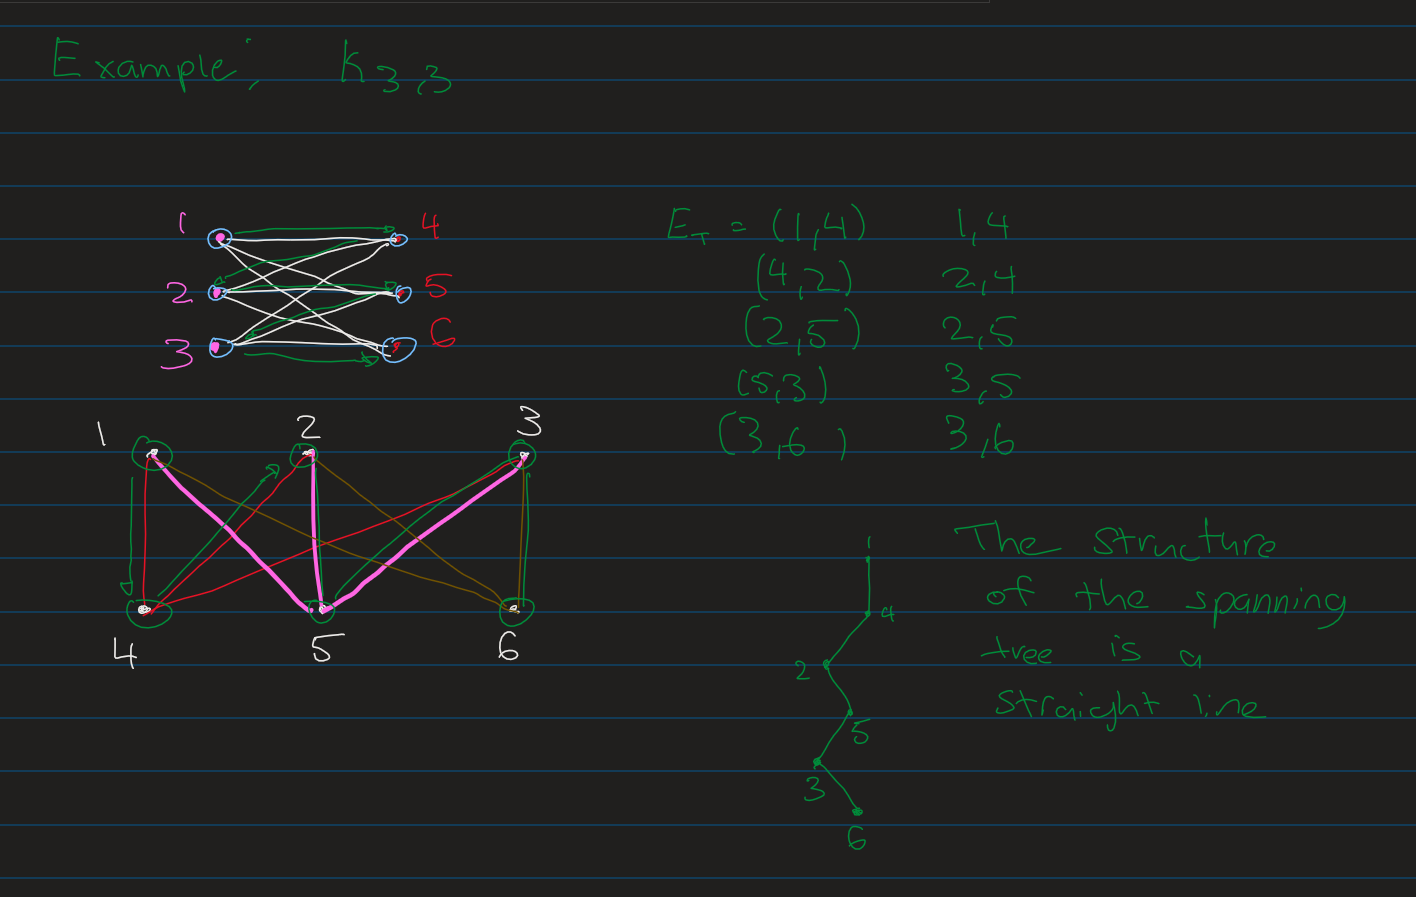 Example; K3,3
1 4
2 5
3 6
E_T = (1,4) 1,4
(4,2) 2,4
(2,5) 2,5
(5,3) 3,5
(3,6) 3,6
1 2 3
4 5 6
1
4
2
5
3
6
The structure
of the spanning
tree is a
straight line